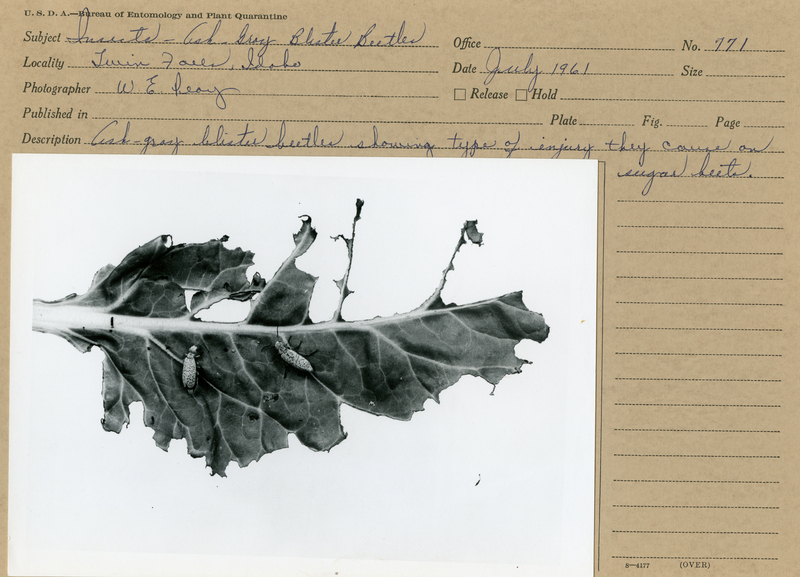 U. S. D. A.—Bureau of Entomology and Plant Quarantine
Subject Insects - Ash Gray Blister Beetles Office No. 771
Locality Twin Falls, Idaho Date July 1961 Size
Photographer W. E. Peay Release Hold
Published in Plate Fig. Page
Description Ash-gray blister beetles showing type of injury they cause on
sugar beets.
8—4177 (OVER)